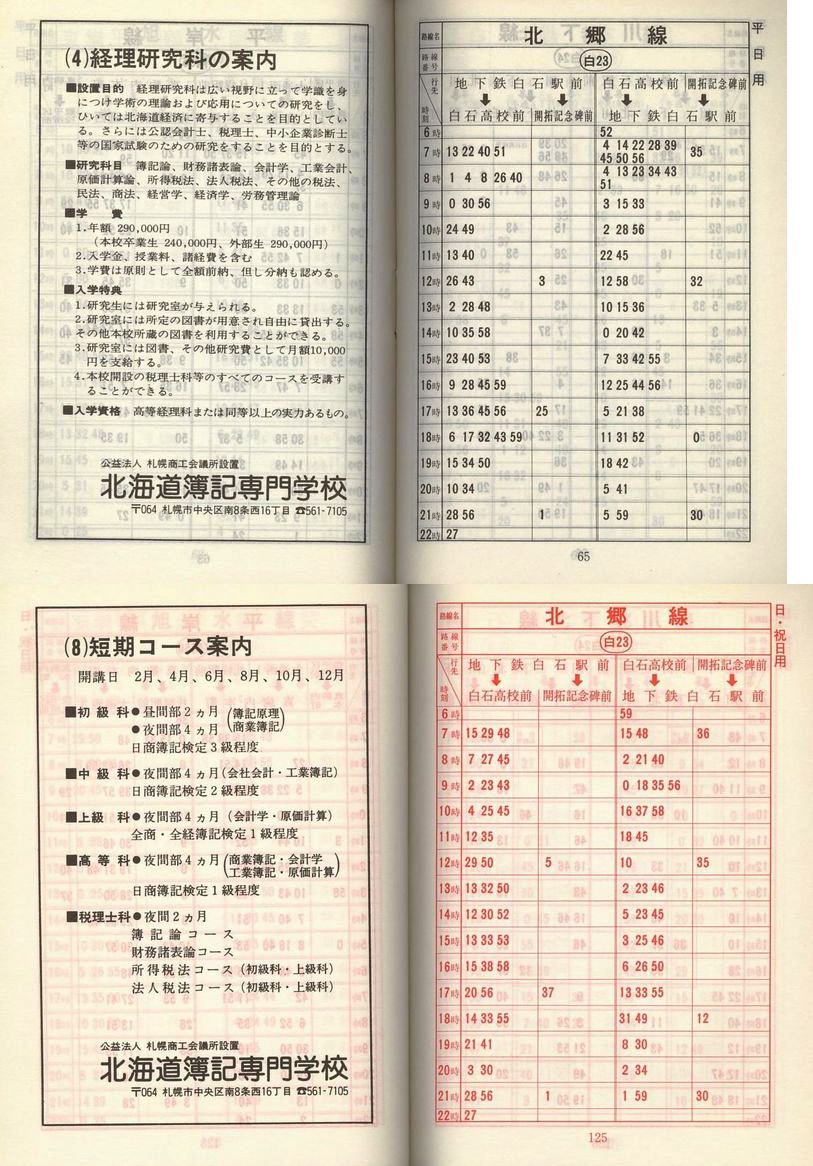 (4)経理研究科の案内
■設置目的 経理研究科は広い視野に立って学識を身
につけ学術の理論および応用についての研究をし、
ひいては北海道経済に寄与することを目的としてい
る。さらには公認会計士、税理士、中小企業診断士
等の国家試験のための研究をすることを目的とする。
■研究科目 簿記論、財務諸表論、会計学、工業会計、
原価計算論、所得税法、法人税法、その他の税法、
民法、商法、経営学、経済学、労務管理論
■学 費
1.年額 290,000円
(本校卒業生 240,000円、外部生 290,000円)
2.入学金、授業料、諸経費を含む
3.学費は原則として全額前納、但し分納も認める。
■入学特典
1.研究生には研究室が与えられる。
2.研究室には所定の図書が用意され自由に貸出する。
その他本校所蔵の図書を利用することができる。
3.研究室には図書、その他研究費として月額10,000
円を支給する。
4.本校開設の税理士科等のすべてのコースを受講す
ることができる。
■入学資格 高等経理科または同等以上の実力あるもの。
公益法人 札幌商工会議所設置
北海道簿記専門学校
〒064 札幌市中央区南8条西16丁目 ☎561-7105
平日用
路線名 北郷線
路線番号 白23
行先 時刻
地下鉄白石駅前 白石高校前 開拓記念碑前
白石高校前 開拓記念碑前 地下鉄白石駅前
6時 52
7時 13 22 40 51 4 14 22 28 39 35
45 50 56
8時 1 4 8 26 40 4 13 23 34 43
51
9時 0 30 56 3 15 33
10時 24 49 2 28 56
11時 13 40 22 45
12時 26 43 3 12 58 32
13時 2 28 48 10 15 36
14時 10 35 58 0 20 42
15時 23 40 53 7 33 42 55
16時 9 28 45 59 12 25 44 56
17時 13 36 45 56 25 5 21 38
18時 6 17 32 43 59 11 31 52 0
19時 15 34 50 18 42
20時 10 34 5 41
21時 28 56 1 5 59 30
22時 27
65
(8)短期コース案内
開講日 2月、4月、6月、8月、10月、12月
■初級科●昼間部2ヵ月(簿記原理
●夜間部4ヵ月 商業簿記)
日商簿記検定3級程度
■中級科●夜間部4ヵ月(会社会計・工業簿記)
日商簿記検定2級程度
■上級科●夜間部4ヵ月(会計学・原価計算)
全商・全経簿記検定1級程度
■高等科●夜間部4ヵ月(商業簿記・会計学
工業簿記・原価計算)
日商簿記検定1級程度
■税理士科●夜間2ヵ月
簿記論コース
財務諸表論コース
所得税法コース(初級科・上級科)
法人税法コース(初級科・上級科)
公益法人 札幌商工会議所設置
北海道簿記専門学校
〒064 札幌市中央区南8条西16丁目 ☎561-7105
日・祝日用
路線名 北郷線
路線番号 白23
行先 時刻
地下鉄白石駅前 白石高校前 開拓記念碑前
白石高校前 開拓記念碑前 地下鉄白石駅前
6時 59
7時 15 29 48 15 48 36
8時 7 27 45 2 21 40
9時 2 23 43 0 18 35 56
10時 4 25 45 16 37 58
11時 12 35 18 45
12時 29 50 5 10 35
13時 13 32 50 2 23 46
14時 12 30 52 5 23 45
15時 13 33 53 3 25 46
16時 15 38 58 6 26 50
17時 20 56 37 13 33 55
18時 14 33 55 31 49 12
19時 21 41 8 30
20時 3 30 2 34
21時 28 56 1 1 59 30
22時 27
125